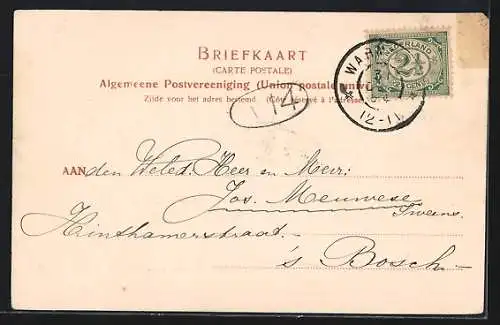 BRIEFKAART
(CARTE POSTALE)
Algemeene Postvereeniging (Union postale
Zijde voor het adres bestemd. (Côté réservé à l'adresse
NEDERLAND
2½
CENT
12-1V
14
AAN den Weled. Heer en Mevr:
Jos. Meuwese
Hinthamerstraat.
's Bosch